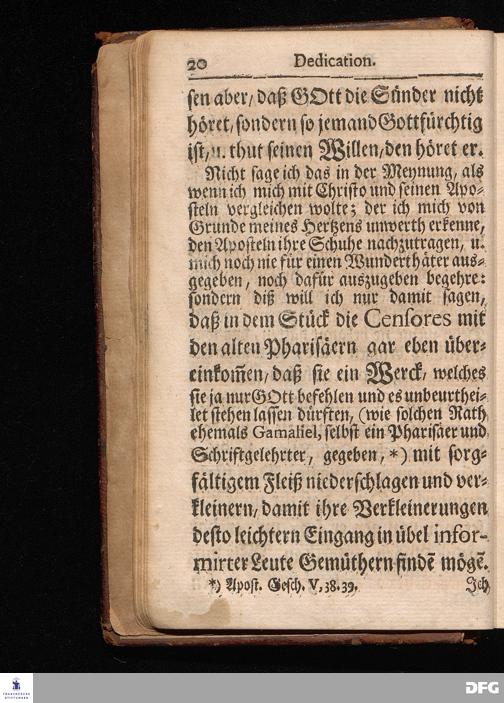 20 Dedication.
sen aber, daß GOtt die Sünder nicht
höret, sondern so jemand Gottfürchtig
ist, u. thut seinen Willen, den höret er.
Nicht sage ich das in der Meynung, als
wenn ich mich mit Christo und seinen Apo-
steln vergleichen wolte; der ich mich von
Grunde meines Hertzens unwerth erkenne,
den Aposteln ihre Schuhe nachzutragen, u.
mich noch nie für einen Wunderthäter aus-
gegeben, noch dafür auszugeben begehre:
sondern diß will ich nur damit sagen,
daß in dem Stück die Censores mit
den alten Pharisäern gar eben über-
einkom̃en, daß sie ein Werck, welches
sie ja nur GOtt befehlen und es unbeurthei-
let stehen lassen dürften, (wie solchen Rath
ehemals Gamaliel, selbst ein Pharisäer und
Schriftgelehrter, gegeben, *) mit sorg-
fältigem Fleiß niederschlagen und ver-
kleinern, damit ihre Verkleinerungen
desto leichtern Eingang in übel infor-
mirter Leute Gemüthern findē mögē.
*) Apost. Gesch. V, 38. 39. Ich
FRANCKESCHE
STIFTUNGEN
DFG